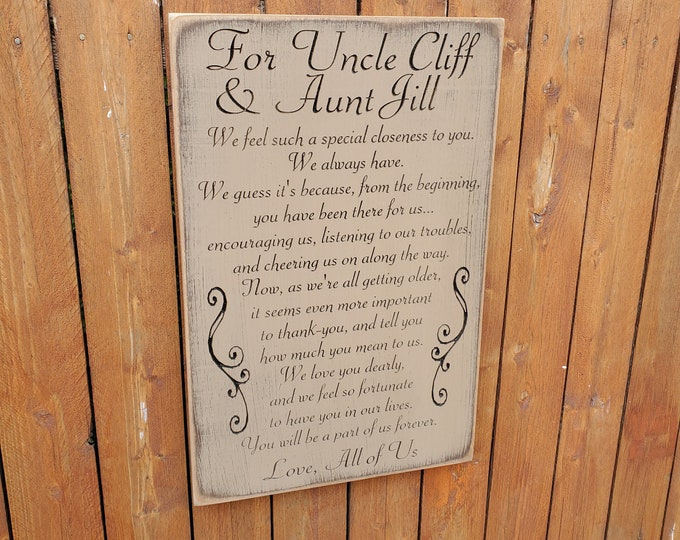 For Uncle Cliff
& Aunt Jill
We feel such a special closeness to you.
We always have.
We guess it's because, from the beginning,
you have been there for us...
encouraging us, listening to our troubles,
and cheering us on along the way.
Now, as we're all getting older,
it seems even more important
to thank-you, and tell you
how much you mean to us.
We love you dearly,
and we feel so fortunate
to have you in our lives.
You will be a part of us forever.
Love, All of Us